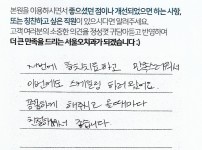 본원을 이용하시면서 좋으셨던 점이나 개선되었으면 하는 사항,
또는 칭찬하고 싶은 직원이 있으시다면 알려주세요.
고객 여러분의 소중한 의견을 정성껏 귀담아듣고 반영하며
더 큰 만족을 드리는 서울오치과가 되겠습니다 :)
지난번에 하고
이번에도 스케일링 하러 왔어요.
꼼꼼하게 해주시고 올때마다
친절하셔서 좋습니다